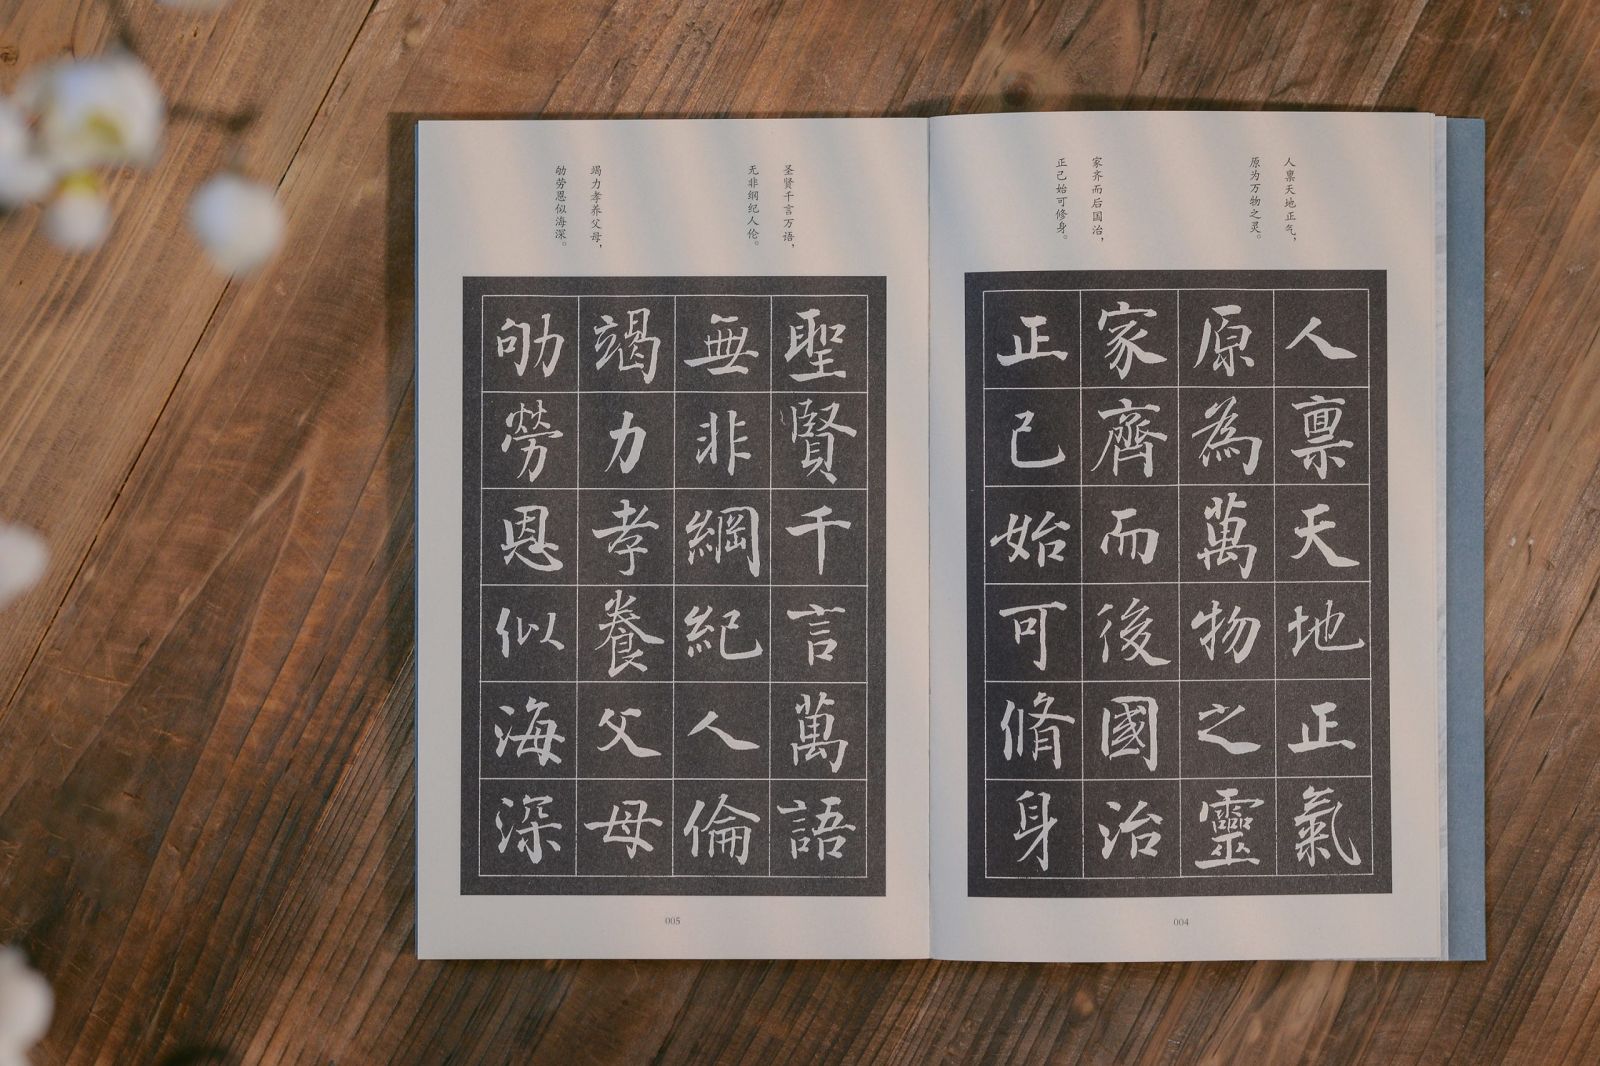 人禀天地正气，
原为万物之灵。
家齐而后国治，
正己始可修身。
人禀天地正氣
原為萬物之靈
家齊而後國治
正己始可脩身
004
圣贤千言万语，
无非纲纪人伦。
竭力孝养父母，
劬劳恩似海深。
聖賢千言萬語
無非綱紀人倫
竭力孝養父母
劬勞恩似海深
005